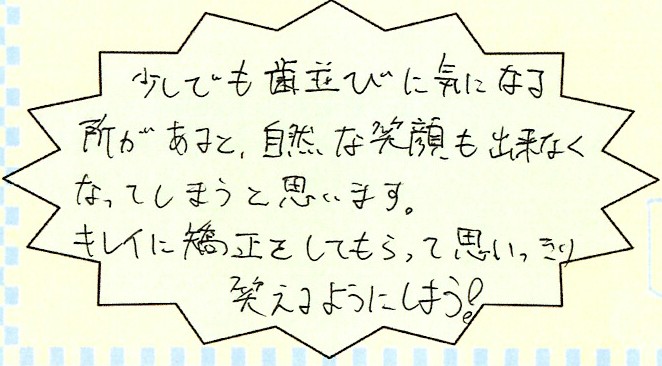 少しでも歯並びに気になる
所があると、自然な笑顔も出来なく
なってしまうと思います。
キレイに矯正をしてもらって思いっきり
笑えるようにしよう!